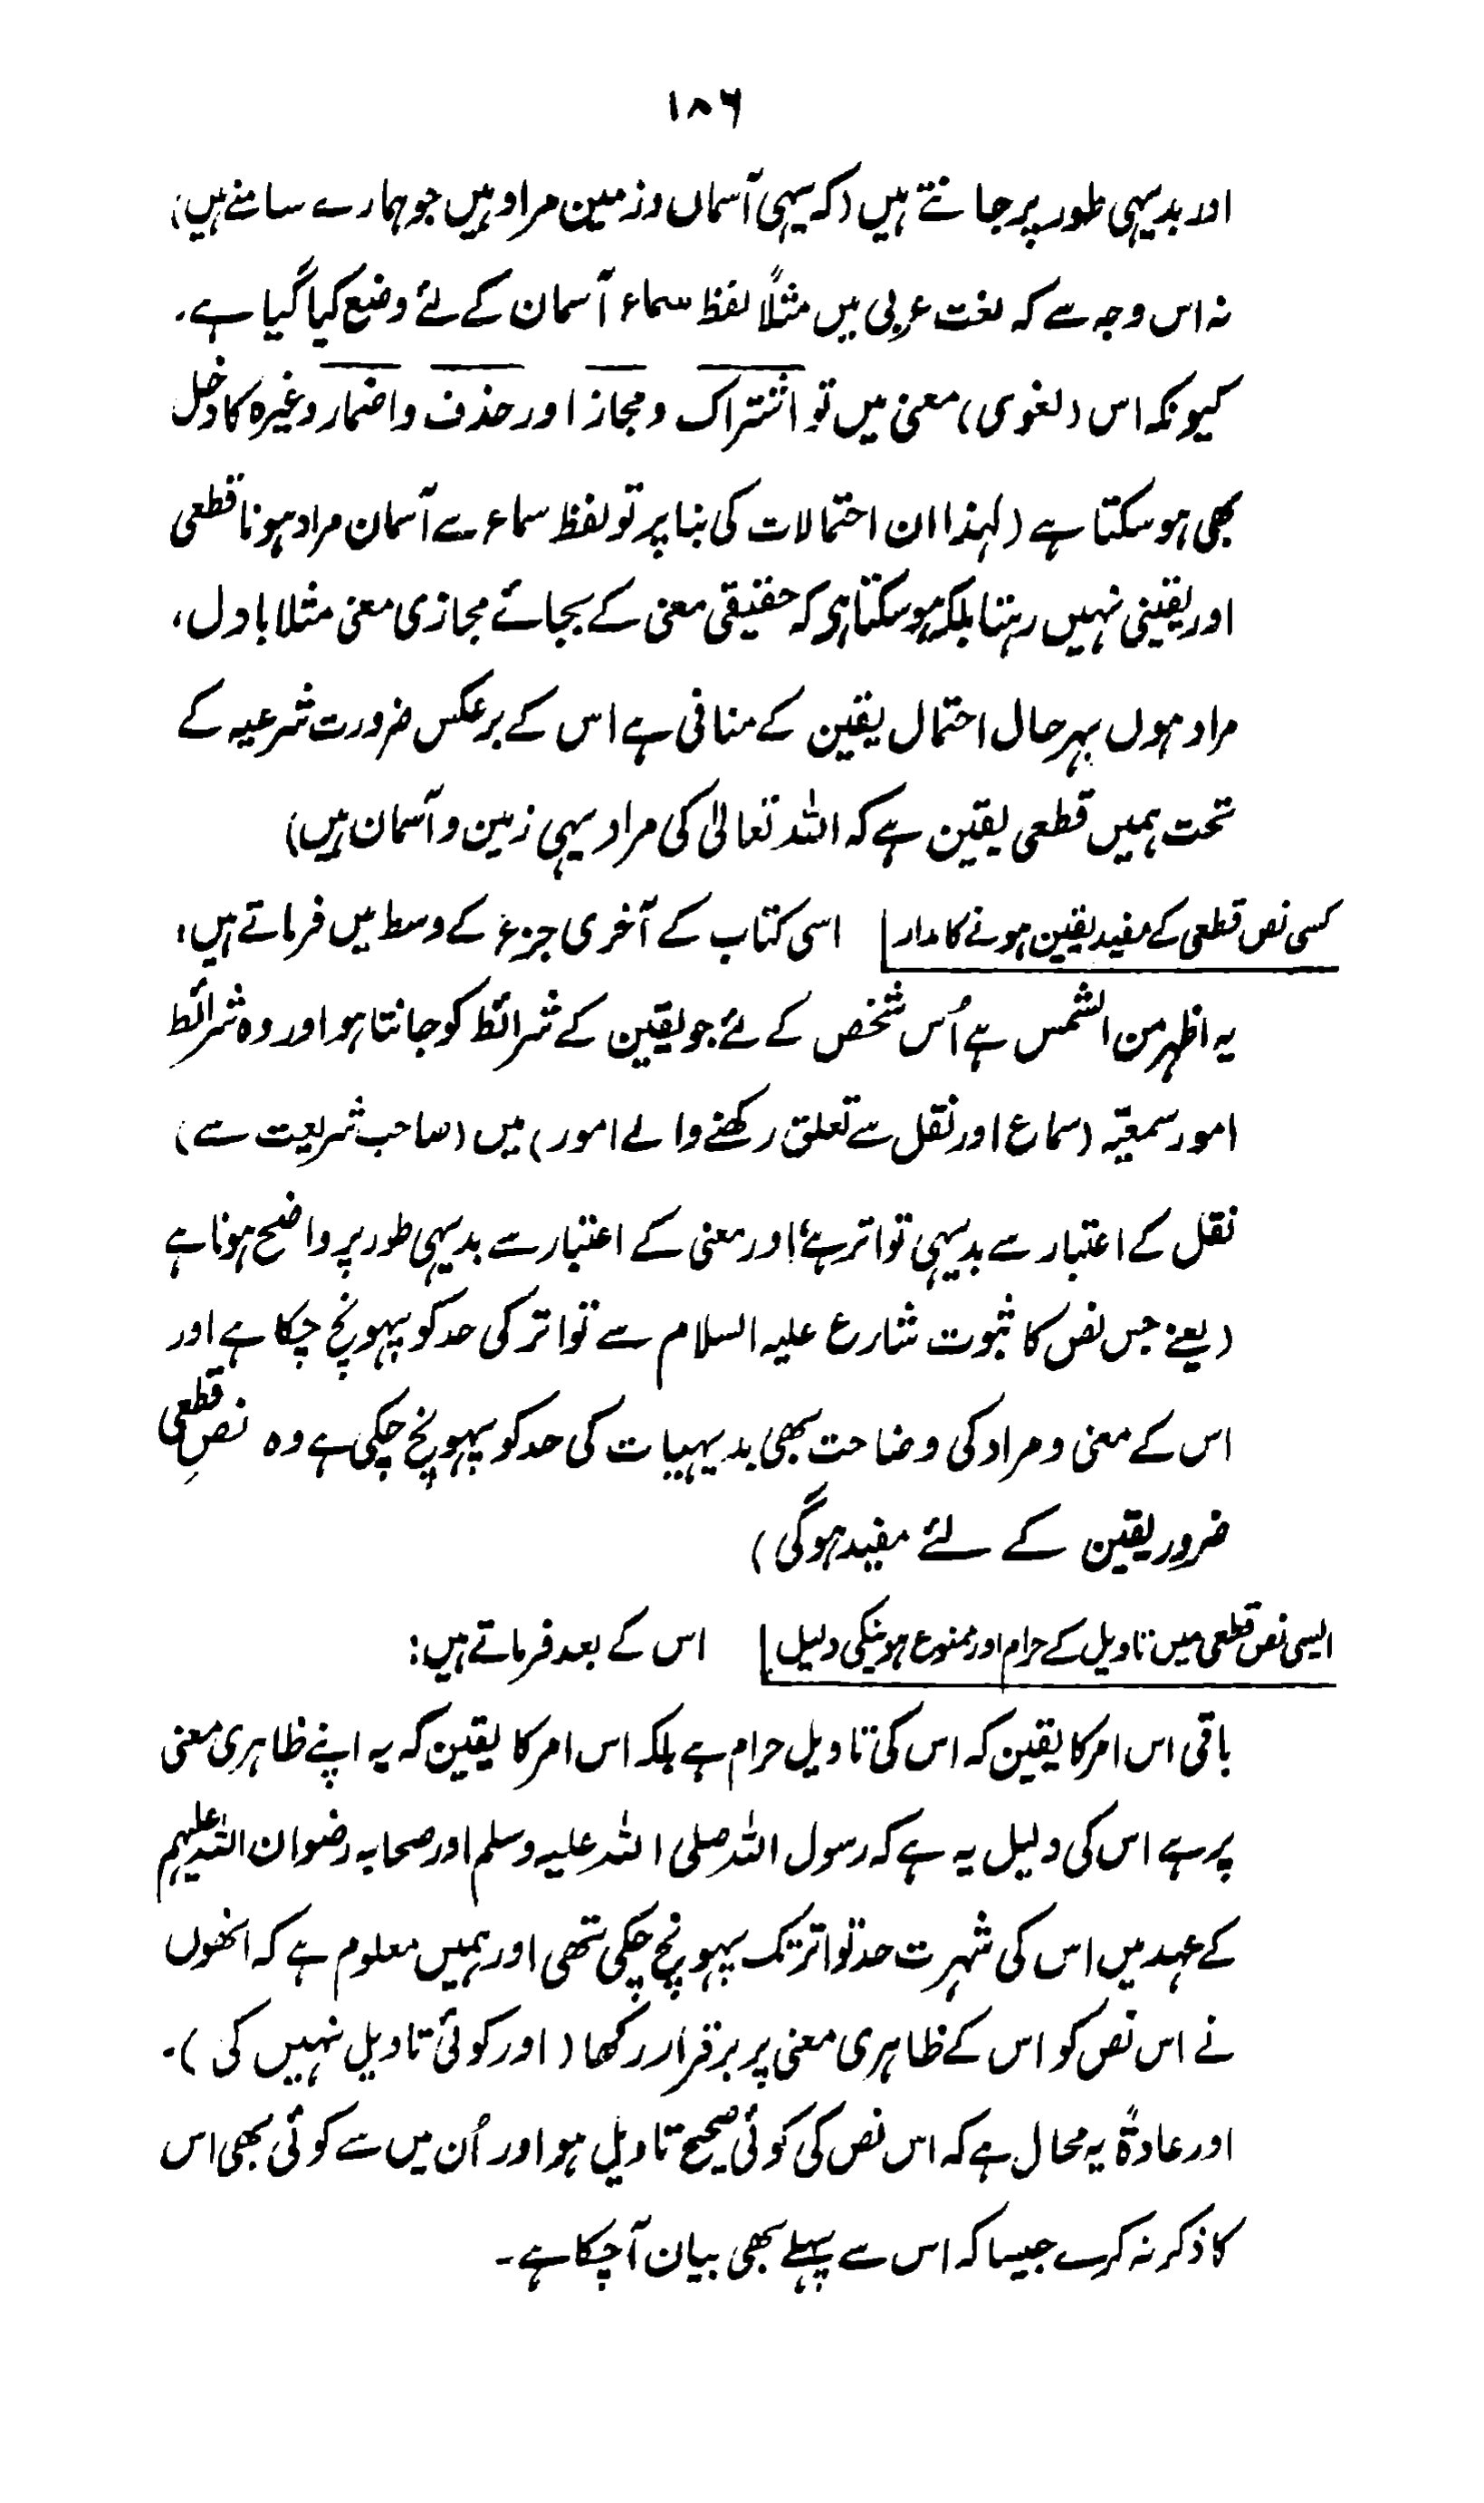 ۱۸۶
اور بدیہی طور پر جانتے ہیں (کہ یہی آسماں و زمین مراد ہیں جو ہمارے سامنے ہیں)
نہ اس وجہ سے کہ لغت عربی میں مثلاً لفظ سماء آسمان کے لئے وضع کیا گیا ہے۔
کیونکہ اس (لغوی) معنی میں تو اشتراک و مجاز اور حذف و اضمار وغیرہ کا دخل
بھی ہو سکتا ہے (لہذا ان احتمالات کی بنا پر تو لفظ سماء سے آسمان مراد ہونا قطعی
اور یقینی نہیں رہتا بلکہ ہو سکتا ہی کہ حقیقی معنی کے بجائے مجازی معنی مثلا بادل،
مراد ہوں بہر حال احتمال یقین کے منافی ہے اس کے برعکس ضرورت شرعیہ کے
تحت ہمیں قطعی یقین ہے کہ اللہ تعالیٰ کی مراد یہی زمین و آسمان ہیں)
کسی نص قطعی کے مفید یقین ہونے کا مدار اسی کتاب کے آخری جزء کے وسط میں فرماتے ہیں:
یہ اظہر من الشمس ہے اُس شخص کے لئے جو یقین کے شرائط کو جانتا ہو اور وہ شرائط
امور سمعیّہ (سماع اور نقل سے تعلق رکھنے والے امور) میں (صاحب شریعت سے)
نقل کے اعتبار سے بدیہی تواتر ہے، اور معنی کے اعتبار سے بدیہی طور پر واضح ہونا ہے
(یعنے جس نص کا ثبوت شارع علیہ السلام سے تواتر کی حد کو پہونچ چکا ہے اور
اس کے معنی و مراد کی وضاحت بھی بدیہیات کی حد کو پہونچ چکی ہے وہ نصِ قطعی
ضرور یقین کے لئے مفید ہوگی)
ایسی نص قطعی میں تاویل کے حرام اور ممنوع ہونیکی دلیل اس کے بعد فرماتے ہیں:
باقی اس امر کا یقین کہ اس کی تاویل حرام ہے بلکہ اس امر کا یقین کہ یہ اپنے ظاہری معنی
پر ہے اس کی دلیل یہ ہے کہ رسول اللہ صلی اللہ علیہ وسلم اور صحابہ رضوان اللہ علیہم
کے عہد میں اس کی شہرت حد تواتر تک پہونچ چکی تھی اور ہمیں معلوم ہے کہ انھوں
نے اس نص کو اس کے ظاہری معنی پر برقرار رکھا (اور کوئی تاویل نہیں کی)۔
اور عادةً یہ محال ہے کہ اس نص کی کوئی صحیح تاویل ہو اور اُن میں سے کوئی بھی اس
کا ذکر نہ کرے جیسا کہ اس سے پہلے بھی بیان آچکا ہے۔